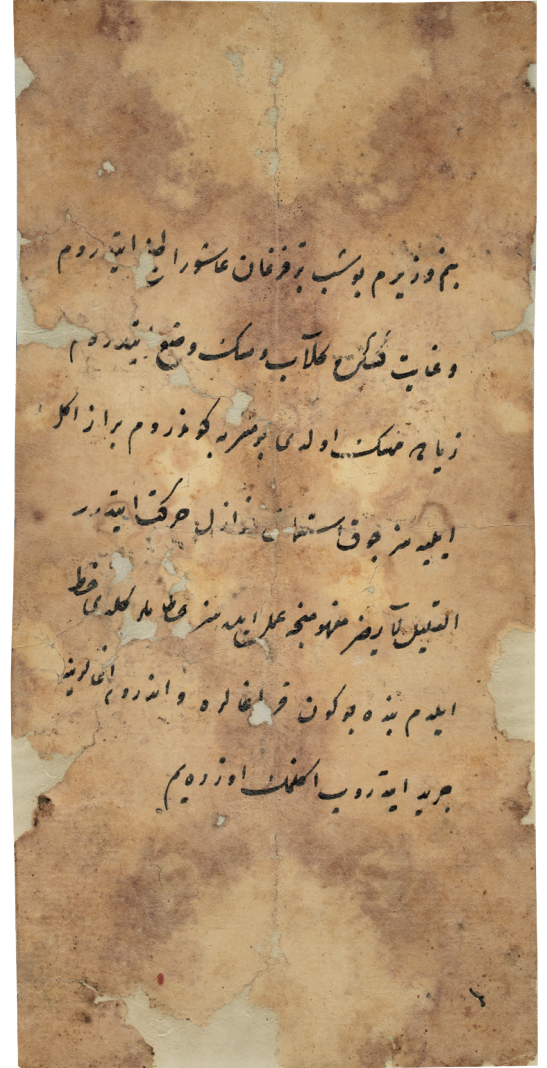 بنم وزيرم بو شب بر قزغان عاشورا طبخ ايتدردم
و غايت كلاب و مسك وضع ايتدردم
زياده ممسك اولدى كوندردم براز اكل
ايليه سز چوق استعمال نوازل حركت ايتدرر
القليل لا يضر مفهومنجه عمل ايله سز خط ايله كلدى حظ
ايلدم بنده بوكون اغالره و اندرون اغالرينه
جريد ايتدروب اكلنمك اوزره يم